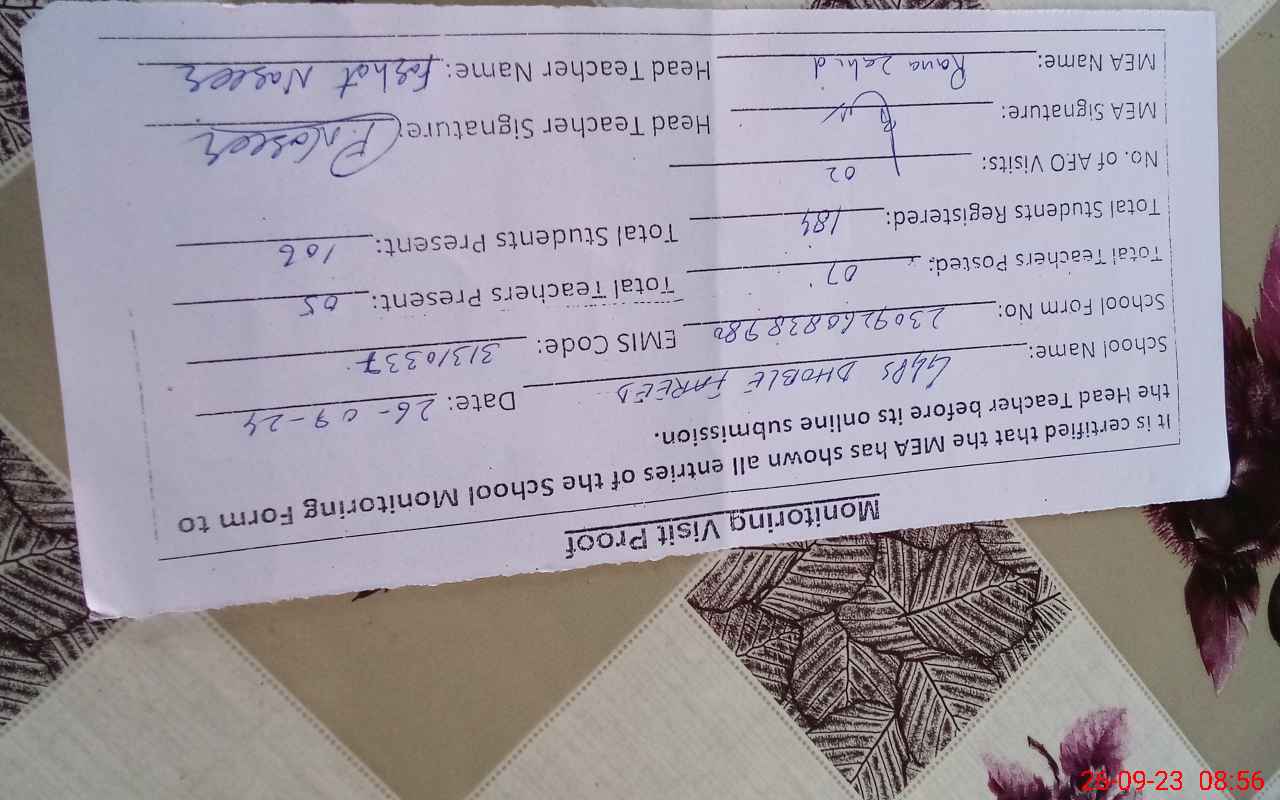 Monitoring Visit Proof
It is certified that the MEA has shown all entries of the School Monitoring Form to
the Head Teacher before its online submission.
School Name: GGPS DHOBLE FAREED Date: 26-09-24
School Form No: 230926083898 EMIS Code: 31310337
Total Teachers Posted: 07 Total Teachers Present: 05
Total Students Registered: 184 Total Students Present: 106
No. of AEO Visits: 02
MEA Signature: Head Teacher Signature: F.Naseer
MEA Name: Rana Zahid Head Teacher Name: Farhat Naseer
26-09-23 08:56